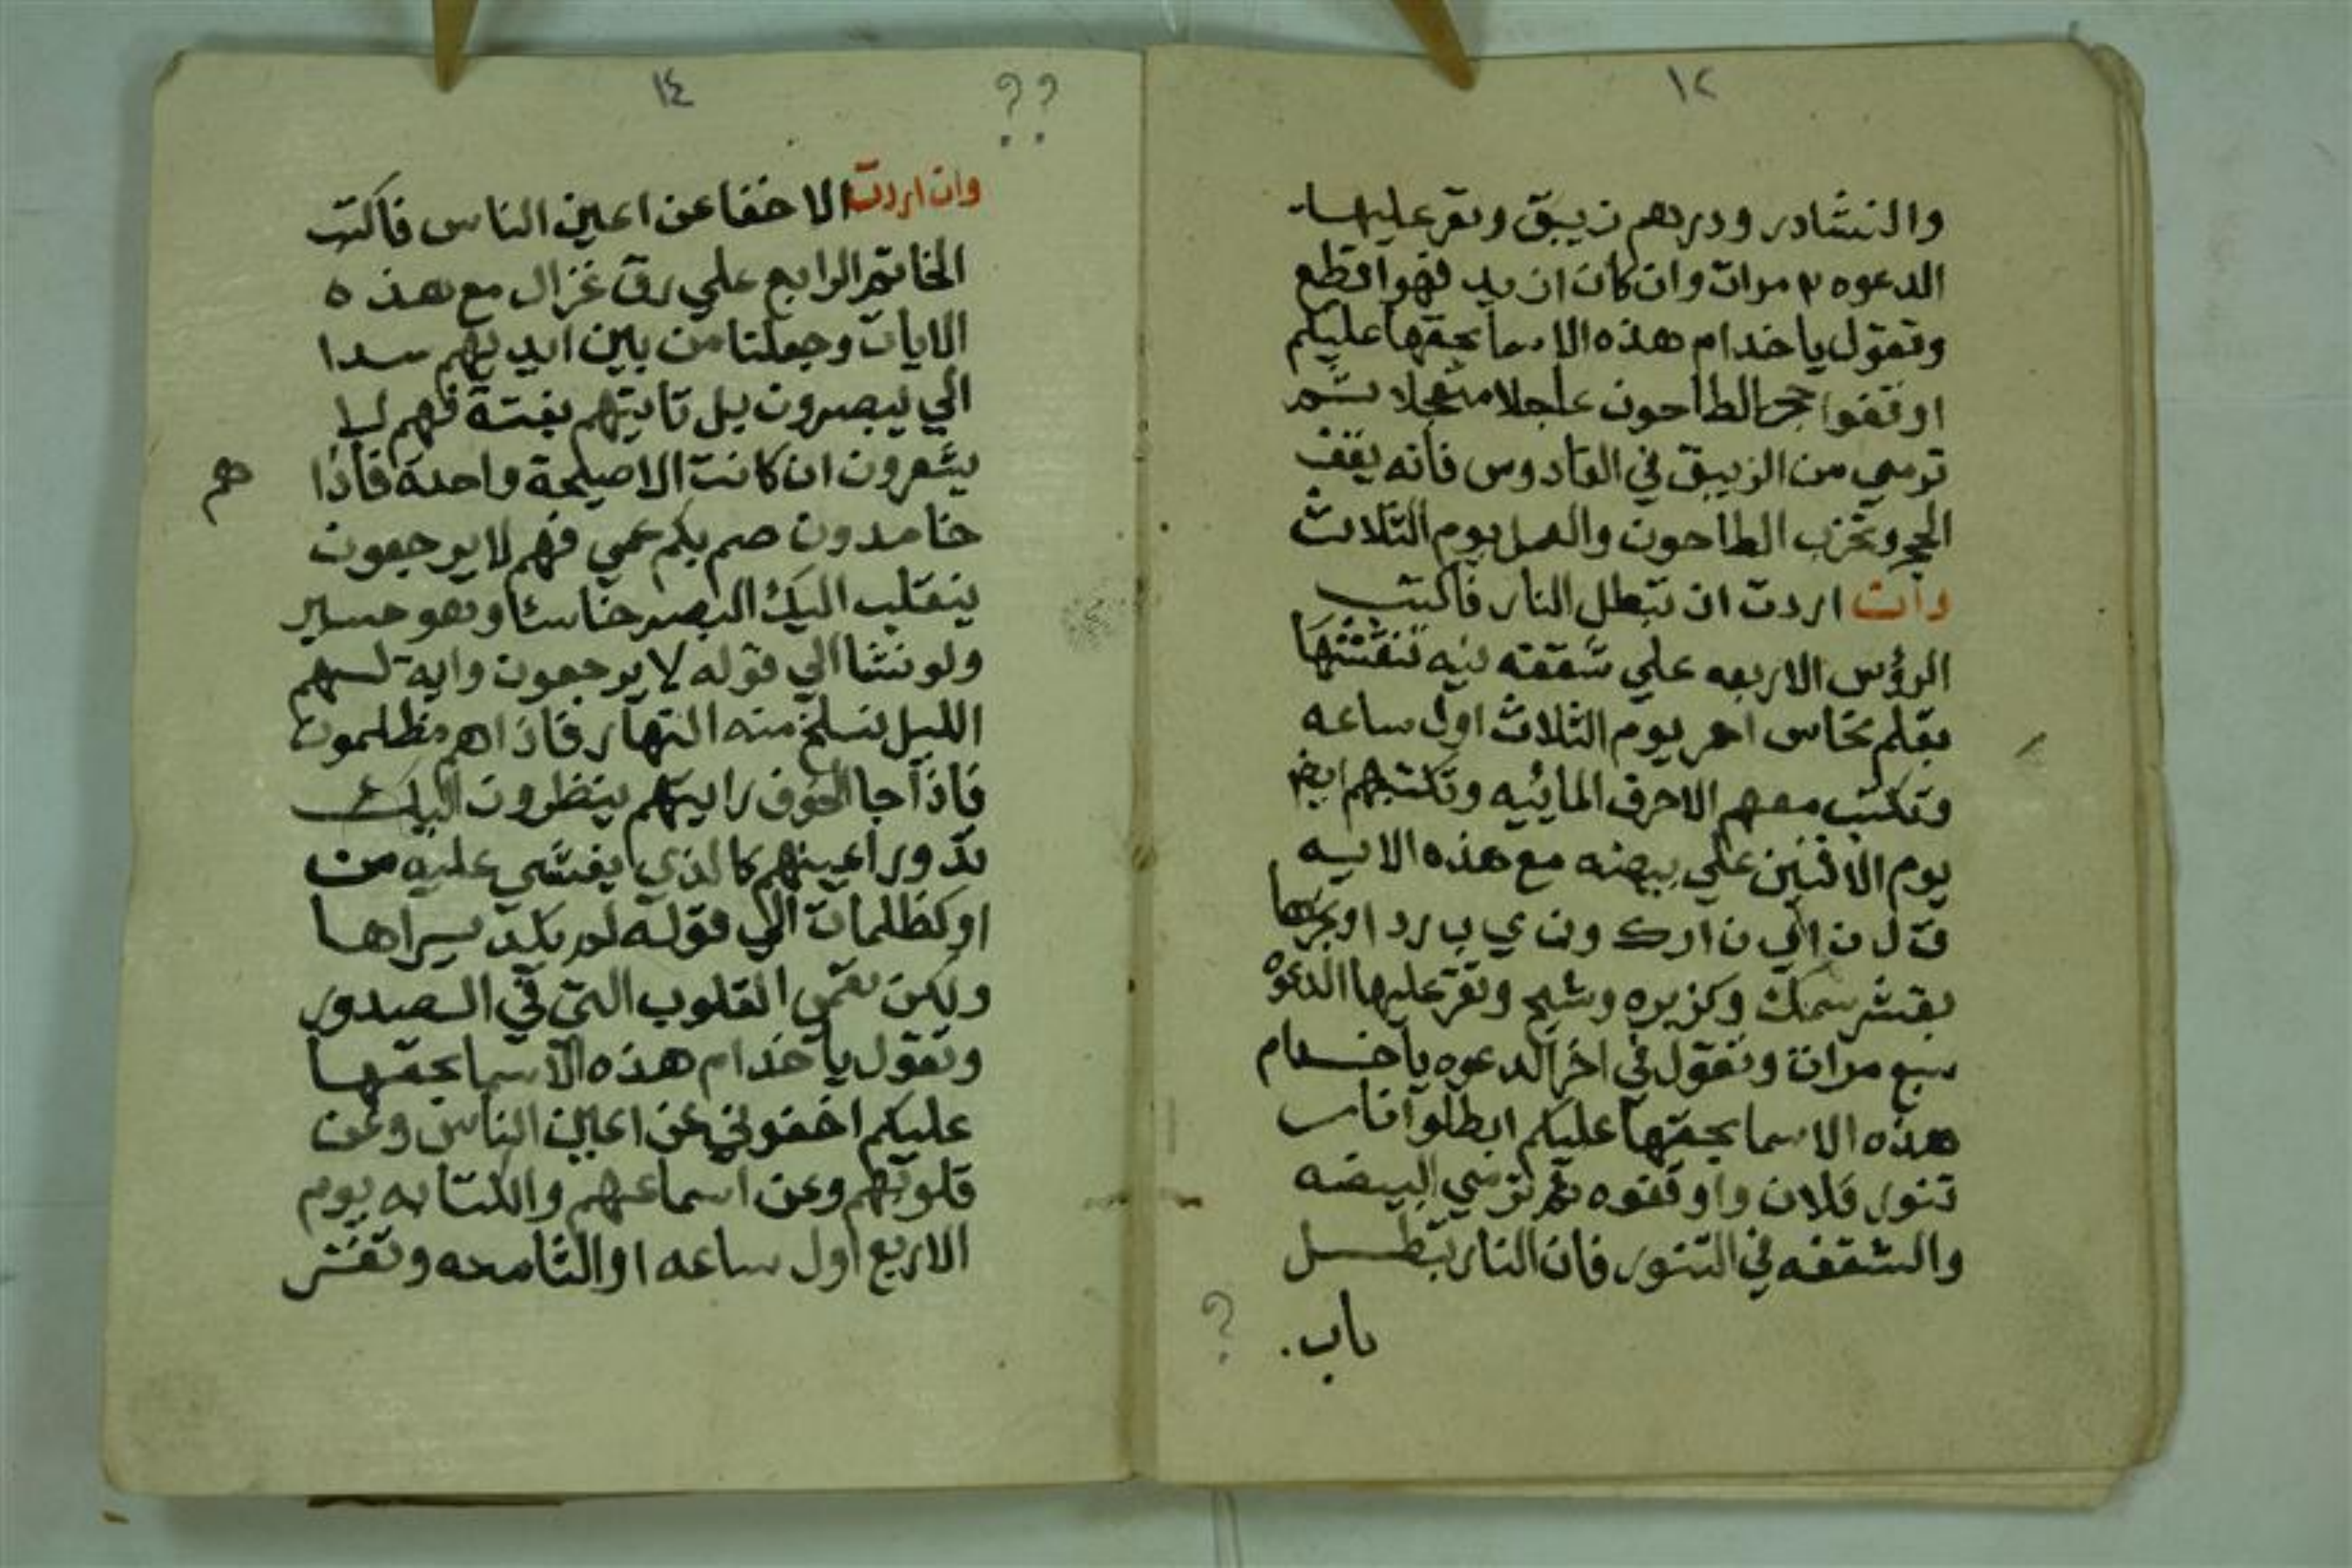 ١٢
والنشادر ودرهم زيبق وتقر عليها
الدعوه ٣ مرات وان كان ازيد فهو اقطع
وتقول ياخدام هذه الاسما بحقها عليكم
اوقفوا حجر الطاحون عاجلا متعجلا ثم
ترمي من الزيبق في القادوس فانه يقف
الحجر وتخرب الطاحون والعمل يوم الثلاث
وان اردت ان تبطل النار فاكتب
الرؤس الاربعه علي شقفه نيه تنقشها
بقلم نحاس احمر يوم الثلاث اول ساعه
وتكتب معهم الاحرف المائيه وتكتبهم ايض
يوم الاثنين علي بيضه مع هذه الايه
ق ل ن ا ي ن ا ر ك و ن ي ب ر د ا وبخرها
بقشر سمك وكزبره وشيح وتقر عليها الدعوه
سبع مرات وتقول في اخر الدعوه ياخدام
هذه الاسما بحقها عليكم ابطلوا نار
تنور فلان واوقفوه ثم ترمي البيضه
والشقفه في التنور فان النار تبطل
باب.
?
١٤
??
وان اردت الاخفا عن اعين الناس فاكتب
الخاتم الرابع علي رق غزال مع هذه
الايات وجعلنا من بين ايديهم سدا
الي يبصرون بل تاتيهم بغتة فهم لا
يشعرون ان كانت الا صيحة واحدة فاذا
هم
خامدون صم بكم عمي فهم لا يرجعون
ينقلب اليك البصر خاسئا وهو حسير
ولو نشا الي قوله لا يرجعون واية لهم
الليل نسلخ منه النهار فاذا هم مظلمون
فاذا جا الخوف رايتهم ينظرون اليك
تدور اعينهم كالذي يغشي عليه من
او كظلمات الي قوله لم يكد يراها
ولكن تعمي القلوب التي في الصدور
وتقول ياخدام هذه الاسما بحقها
عليكم اخفوني عن اعين الناس وعن
قلوبهم وعن اسماعهم والكتابه يوم
الاربع اول ساعه او الثامنه وتقش